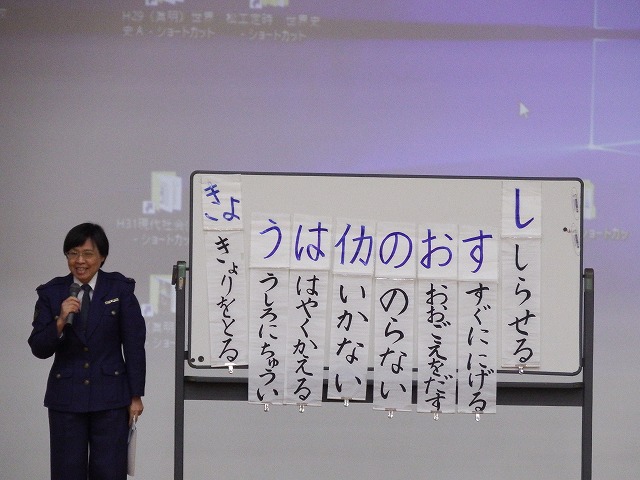 世界
史A - ショートカット
松工定時 世界史
- ショートカット
H31現代社
- ショートカット
し
しらせる
す
すぐににげる
お
おおごえをだす
の
のらない
イカ
いかない
は
はやくかえる
う
うしろにちゅうい
きょ
きょりをとる